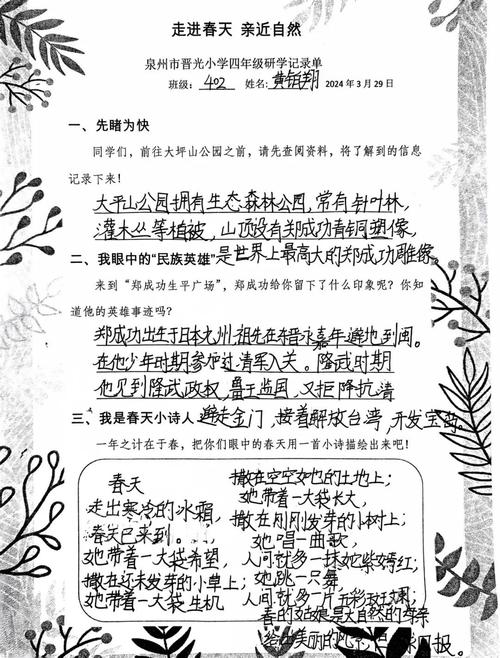 走进春天 亲近自然
泉州市晋光小学四年级研学记录单
班级: 402 姓名: 黄钰翔 2024年3月29日
一、先睹为快
同学们，前往大坪山公园之前，请先查阅资料，将了解到的信息
记录下来！
大平山公园拥有生态森林公园,常有针叶林,
灌木丛等植被,山顶设有郑成功青铜塑像,
二、我眼中的“民族英雄” 是世界上最高大的郑成功雕像
来到“郑成功生平广场”，郑成功给你留下了什么印象呢？你知
道他的英雄事迹吗？
郑成功出生于日本九州,祖先在晋永嘉年避地到闽。
在他少年时期参加过清军入关。隆武时期
他见到隆武政权,鲁王监国,又拒降抗清
三、我是春天小诗人 避走金门,接着解放台湾,开发宝岛。
一年之计在于春，把你们眼中的春天用一首小诗描绘出来吧！
春天
走出寒冷的冰霜,
春天已来到。
她带着一大袋希望,
撒在还未发芽的小草上;
她带着一大袋生机
撒在空空如也的土地上;
她带着一大袋水,
撒在刚刚发芽的小树上;
她唱一曲歌,
人间就多一抹姹紫嫣红;
她跳一只舞
人间就多一片五彩斑斓;
春的姑娘是大自然的母亲
美丽的